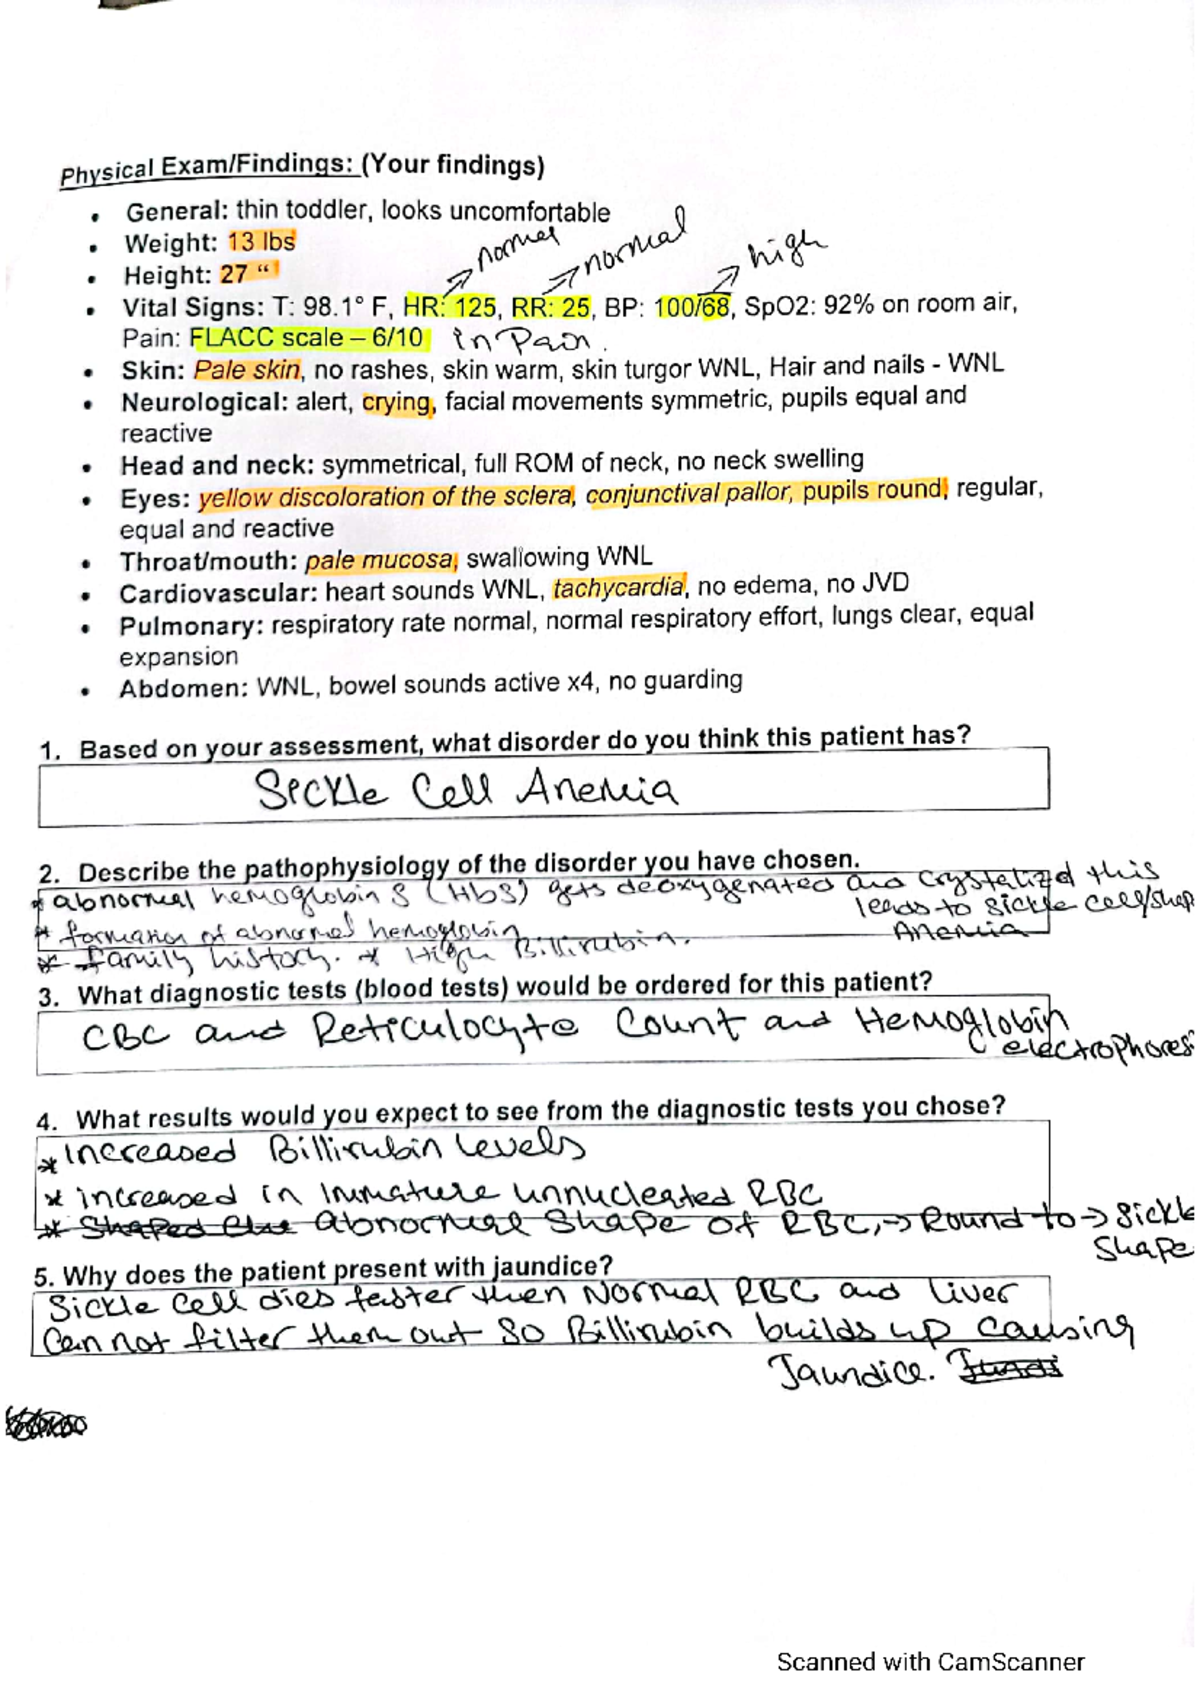 Physical Exam/Findings: (Your findings)
• General: thin toddler, looks uncomfortable
• Weight: 13 lbs
• Height: 27 “
normal normal high
• Vital Signs: T: 98.1° F, HR: 125, RR: 25, BP: 100/68, SpO2: 92% on room air,
Pain: FLACC scale – 6/10 in Pain.
• Skin: Pale skin, no rashes, skin warm, skin turgor WNL, Hair and nails - WNL
• Neurological: alert, crying, facial movements symmetric, pupils equal and
reactive
• Head and neck: symmetrical, full ROM of neck, no neck swelling
• Eyes: yellow discoloration of the sclera, conjunctival pallor, pupils round, regular,
equal and reactive
• Throat/mouth: pale mucosa, swallowing WNL
• Cardiovascular: heart sounds WNL, tachycardia, no edema, no JVD
• Pulmonary: respiratory rate normal, normal respiratory effort, lungs clear, equal
expansion
• Abdomen: WNL, bowel sounds active x4, no guarding
1. Based on your assessment, what disorder do you think this patient has?
Sickle Cell Anemia
2. Describe the pathophysiology of the disorder you have chosen.
* abnormal hemoglobin S (HbS) gets deoxygenated and crystalized this
leads to sickle cell/shap
Anemia
* formation of abnormal hemoglobin
* family history. * High Billirubin.
3. What diagnostic tests (blood tests) would be ordered for this patient?
CBC and Reticulocyte Count and Hemoglobin
electrophoresi
4. What results would you expect to see from the diagnostic tests you chose?
* Increased Billirubin levels
* increased in Immature unnucleated RBC
* Shaped abnormal shape of RBC, → Round to → Sickle
Shape
5. Why does the patient present with jaundice?
Sickle Cell dies faster then Normal RBC and liver
Cannot filter them out so Billirubin builds up causing
Jaundice.
Scanned with CamScanner